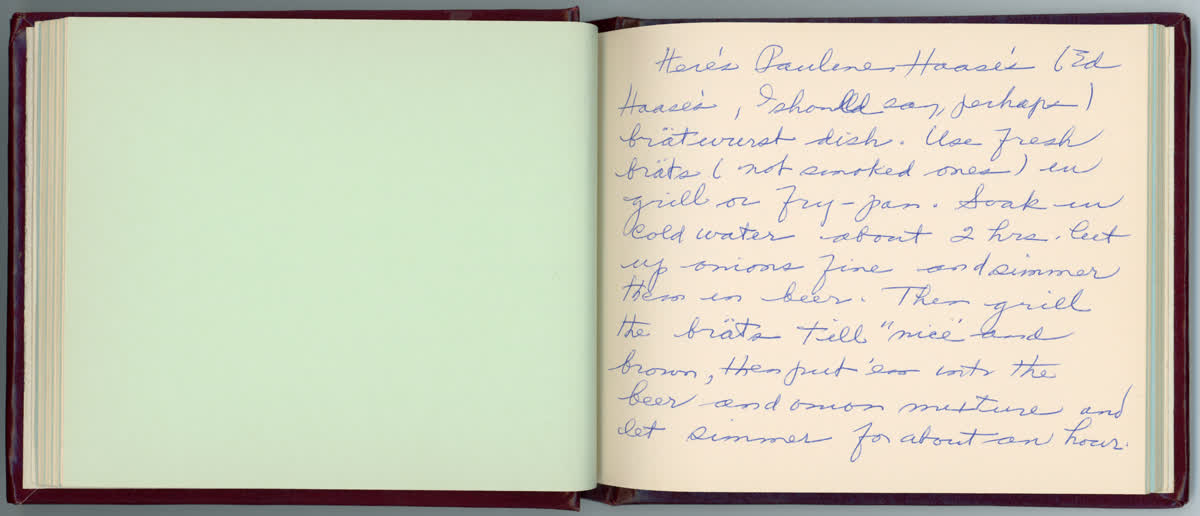 Here's Pauline Haase's (Ed
Haase's, I should say, perhaps)
brätwurst dish. Use fresh
bräts (not smoked ones) in
grill or fry-pan. Soak in
cold water about 2 hrs. Cut
up onions fine and simmer
them in beer. Then grill
the bräts till "nice" and
brown, then put 'em into the
beer and onion mixture and
let simmer for about an hour.